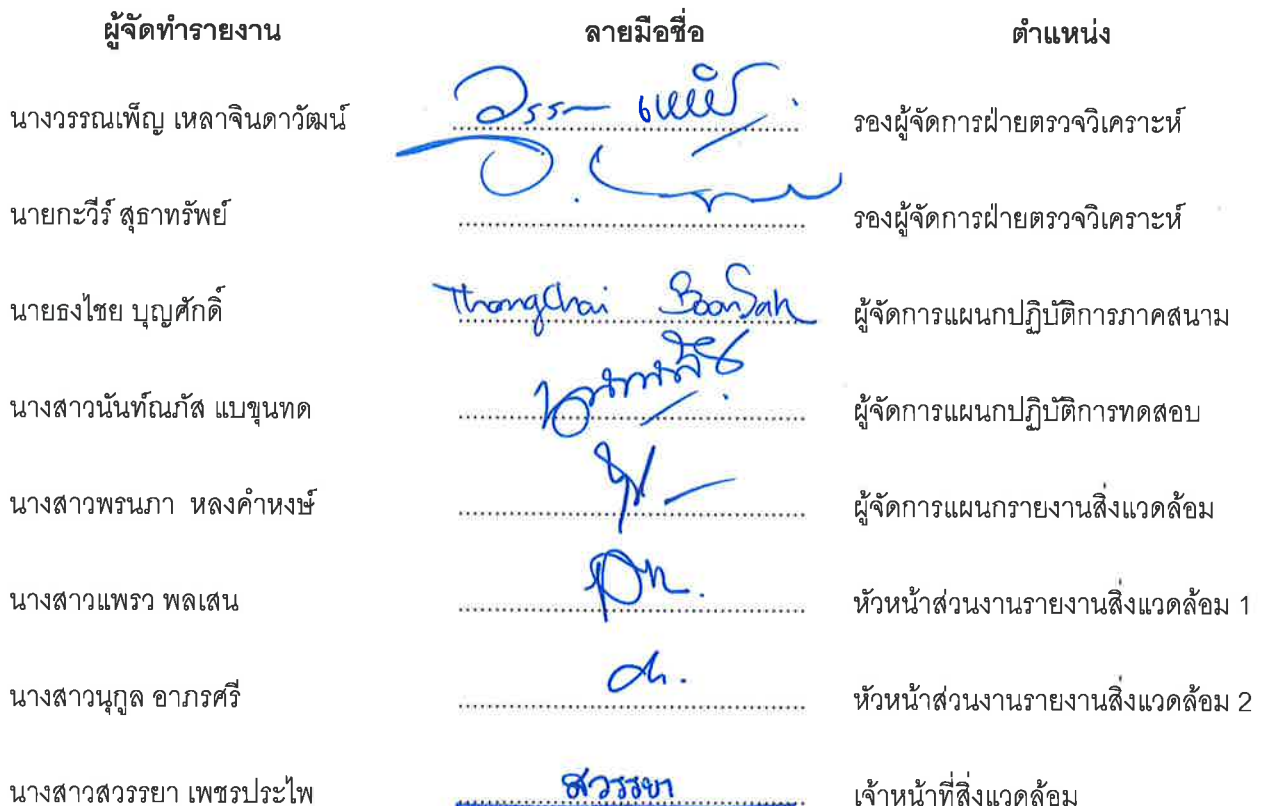 ผู้จัดทำรายงาน ลายมือชื่อ ตำแหน่ง
นางวรรณเพ็ญ เหลาจินดาวัฒน์ รองผู้จัดการฝ่ายตรวจวิเคราะห์
นายกะวีร์ สุธาทรัพย์ รองผู้จัดการฝ่ายตรวจวิเคราะห์
นายธงไชย บุญศักดิ์ Thongchai BoonSak ผู้จัดการแผนกปฏิบัติการภาคสนาม
นางสาวนันท์ณภัส แบขุนทด ผู้จัดการแผนกปฏิบัติการทดสอบ
นางสาวพรนภา หลงคำหงษ์ ผู้จัดการแผนกรายงานสิ่งแวดล้อม
นางสาวแพรว พลเสน หัวหน้าส่วนงานรายงานสิ่งแวดล้อม 1
นางสาวนุกูล อาภรศรี หัวหน้าส่วนงานรายงานสิ่งแวดล้อม 2
นางสาวสวรรยา เพชรประไพ สวรรยา เจ้าหน้าที่สิ่งแวดล้อม